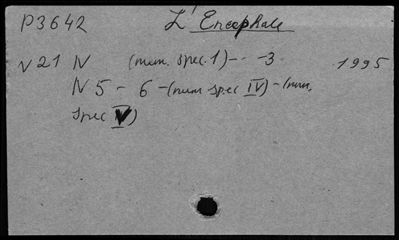 P3642 L'Encephale
V 21 N (num. spec. 1) - - 3 1995
N 5 - 6 - (num spec IV) - (num.
spec V)